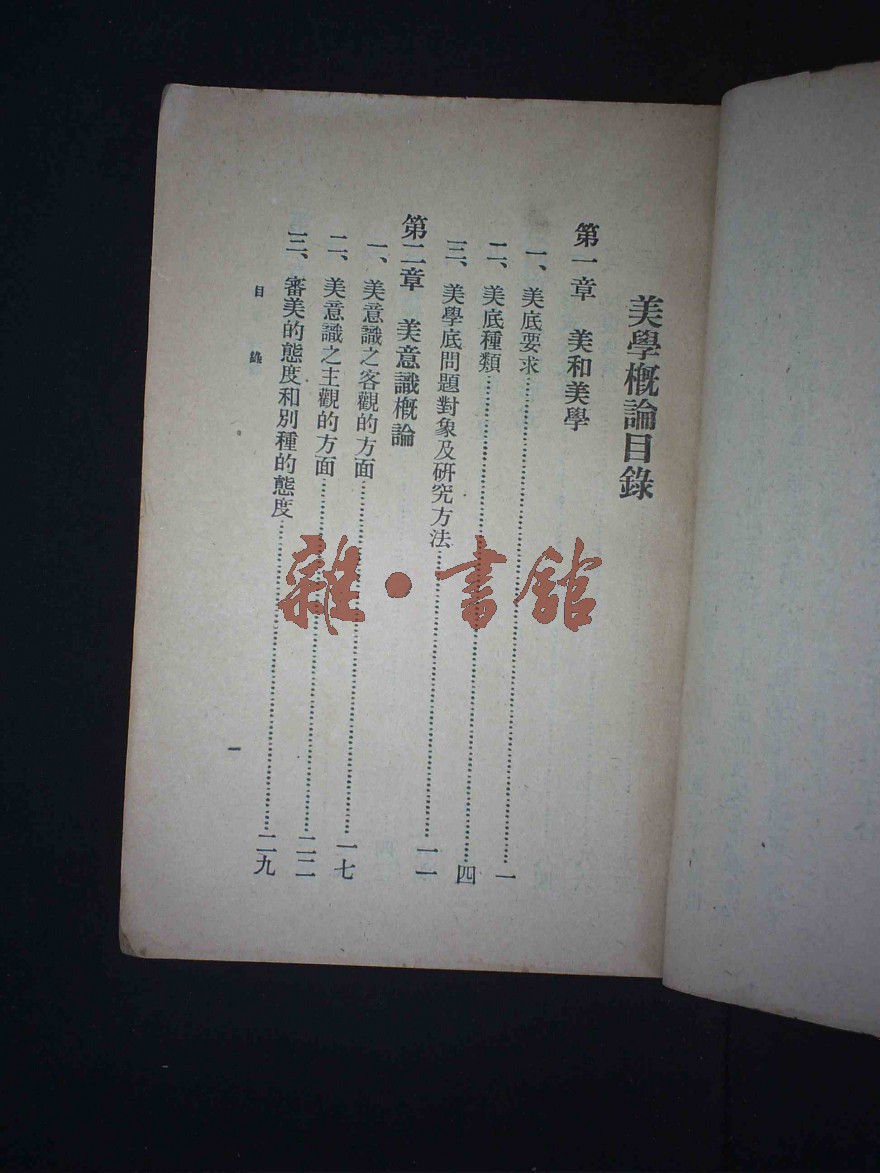 美學槪論目錄
第一章 美和美學
一、美底要求……一
二、美底種類……四
三、美學底問題對象及研究方法……一一
第二章 美意識槪論
一、美意識之客觀的方面……一七
二、美意識之主觀的方面……二二
三、審美的態度和別種的態度……二九
目錄
一
雜·書館